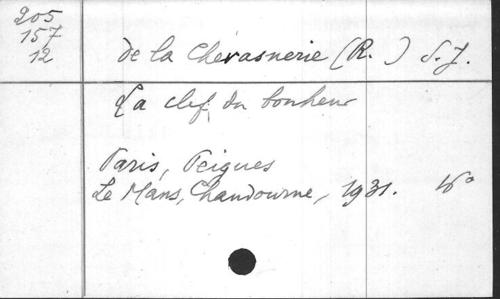 205
157
12
de la Chevasnerie (R. ) S.J.
La clef du bonheur
Paris, Téqui
Le Mans, Chaudourne, 1931. 16°